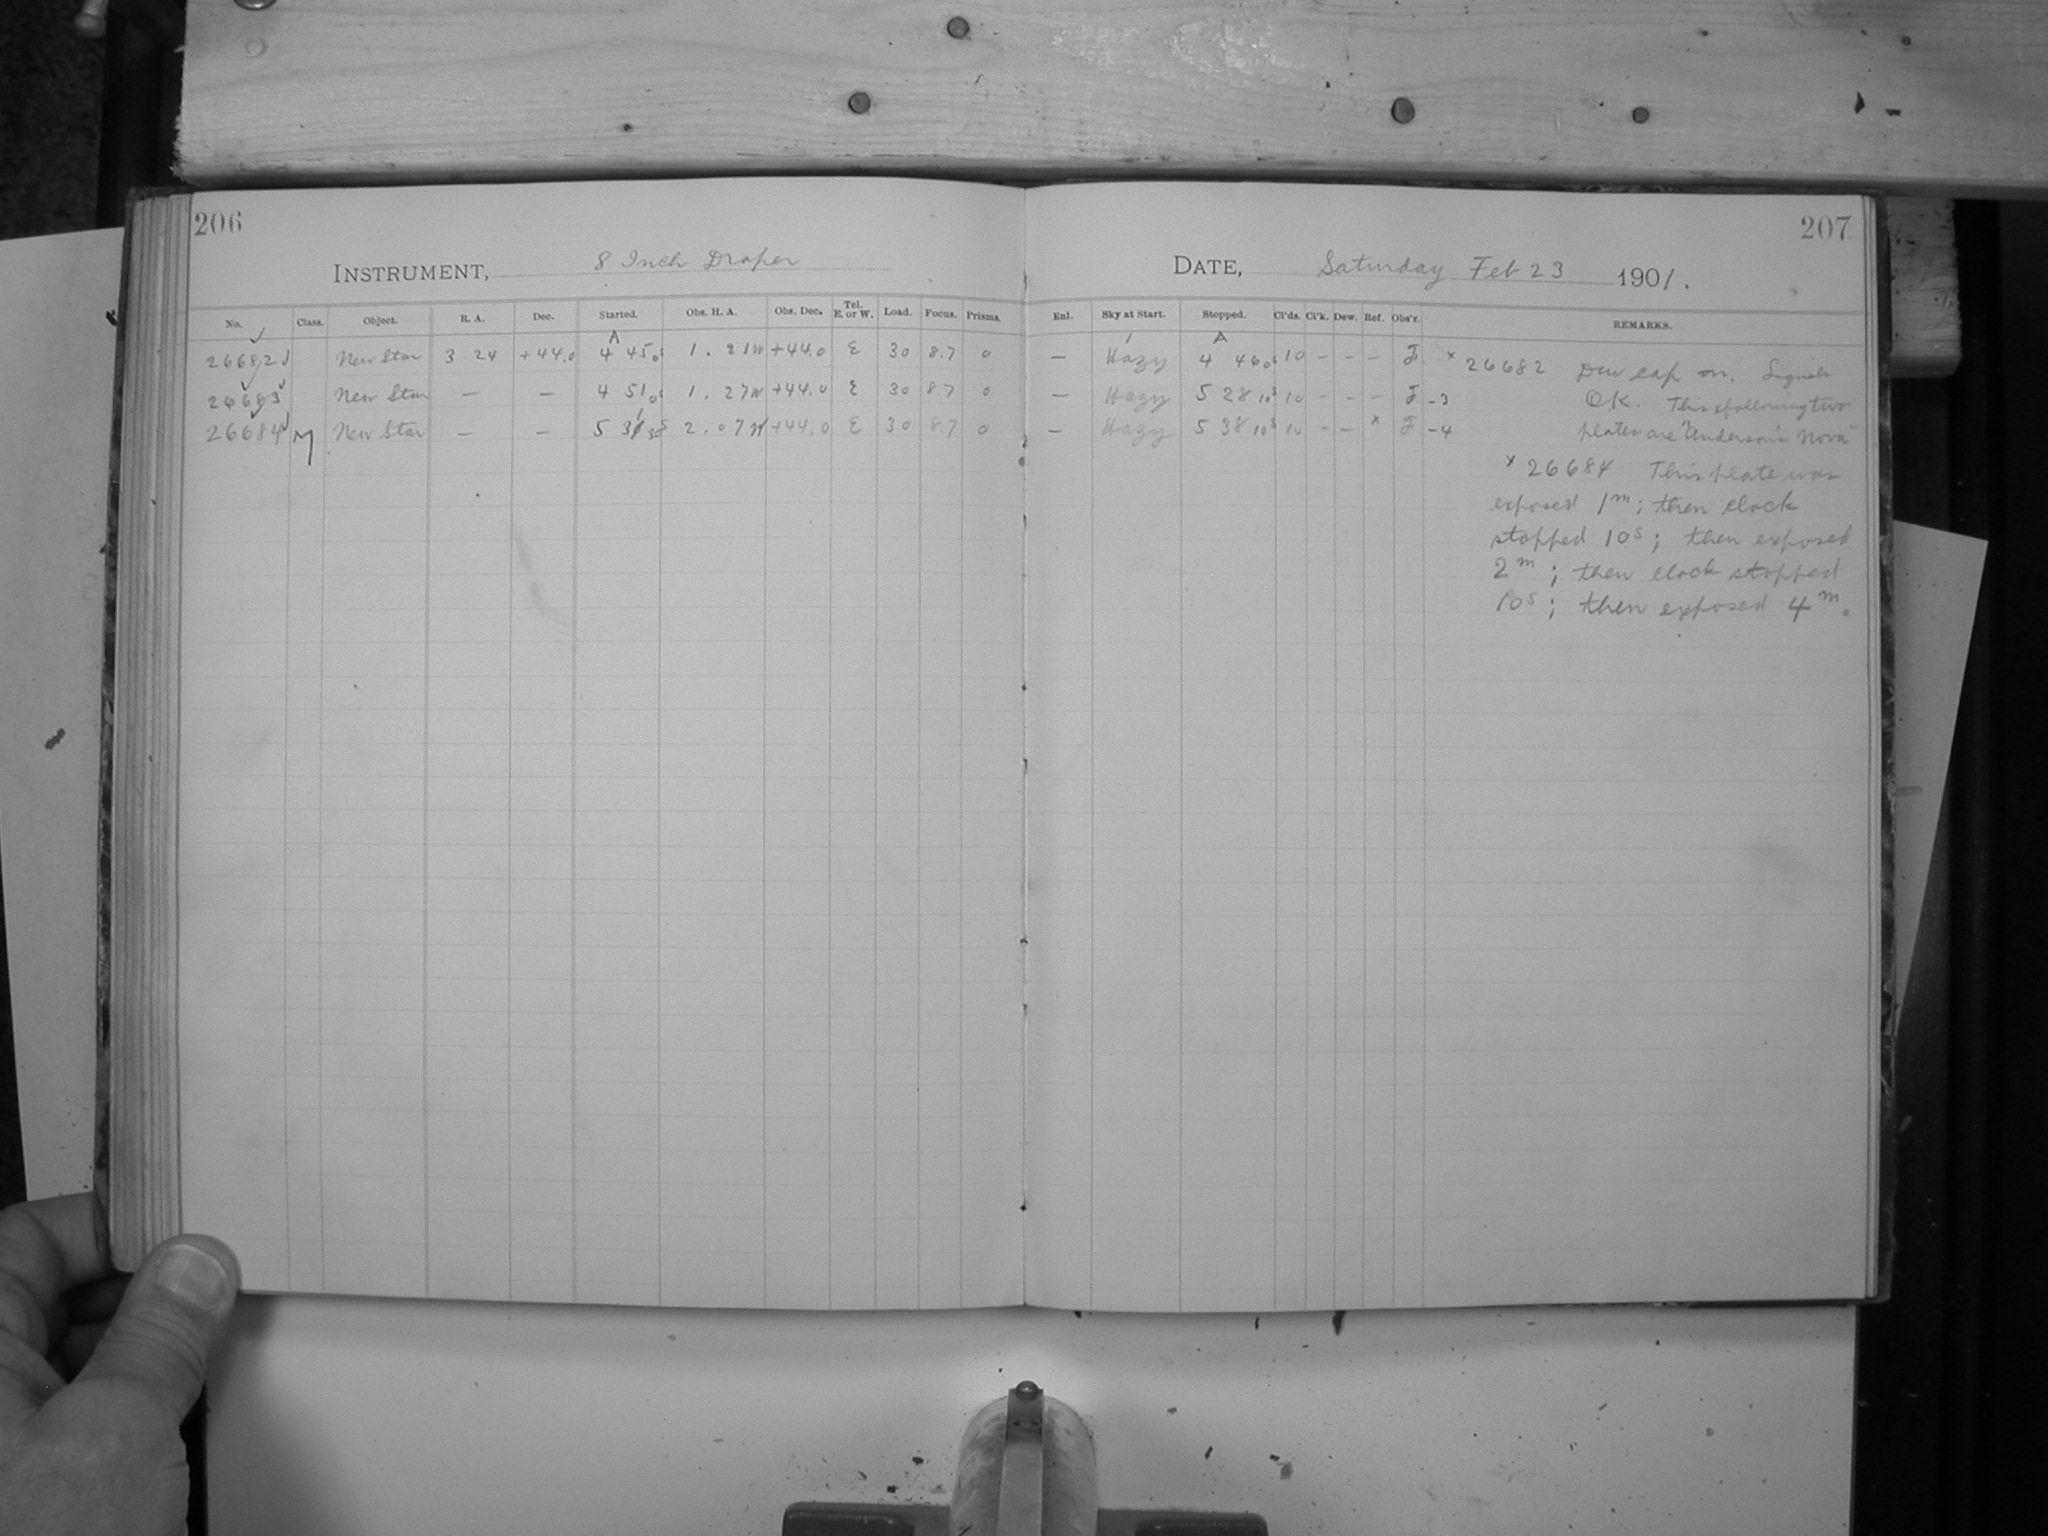 206
207
INSTRUMENT, 8 Inch Draper
DATE, Saturday Feb 23 1901.
No. Class. Object. R. A. Dec. Started. Obs. H. A. Obs. Dec. Tel. E. or W. Load. Focus. Prisms. Enl. Sky at Start. Stopped. Cl'ds. Cl'k. Dew. Ref. Obs'r. REMARKS.
26682 New Star 3 24 +44.0 4 45 0s 1.21W +44.0 E 30 8.7 0 — Hazy 4 46 0s 10 - - - F.
26683 New Star — — 4 51 0s 1.27W +44.0 E 30 8.7 0 — Hazy 5 28 10s 10 - - - F -3
26684 M New Star — — 5 31 30s 2.07W +44.0 E 30 8.7 0 — Hazy 5 38 10s 10 - — x F -4
x 26682 Dew cap on. Signals
OK. This & following two
plates are "Anderson's Nova"
x 26684 This plate was
exposed 1m; then clock
stopped 10s; then exposed
2m; then clock stopped
10s; then exposed 4m.